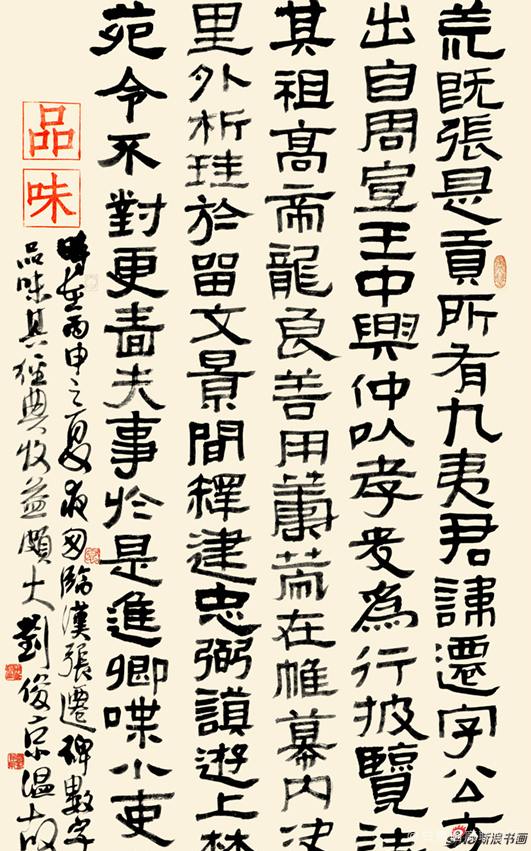 荒既張是貢所有九夷君諱遷字公方
出自周宣王中興仲以孝友為行披覽詩
其祖高帝龍良善用籌策在帷幕內決
里外析珪於留文景間釋建忠弼謨遊上林
苑令不對更嗇夫事於是進卿喋小吏
品味
時在丙申之夏夜匆臨漢張遷碑數字
品味其經典收益頗大劉俊京溫故
新浪书画